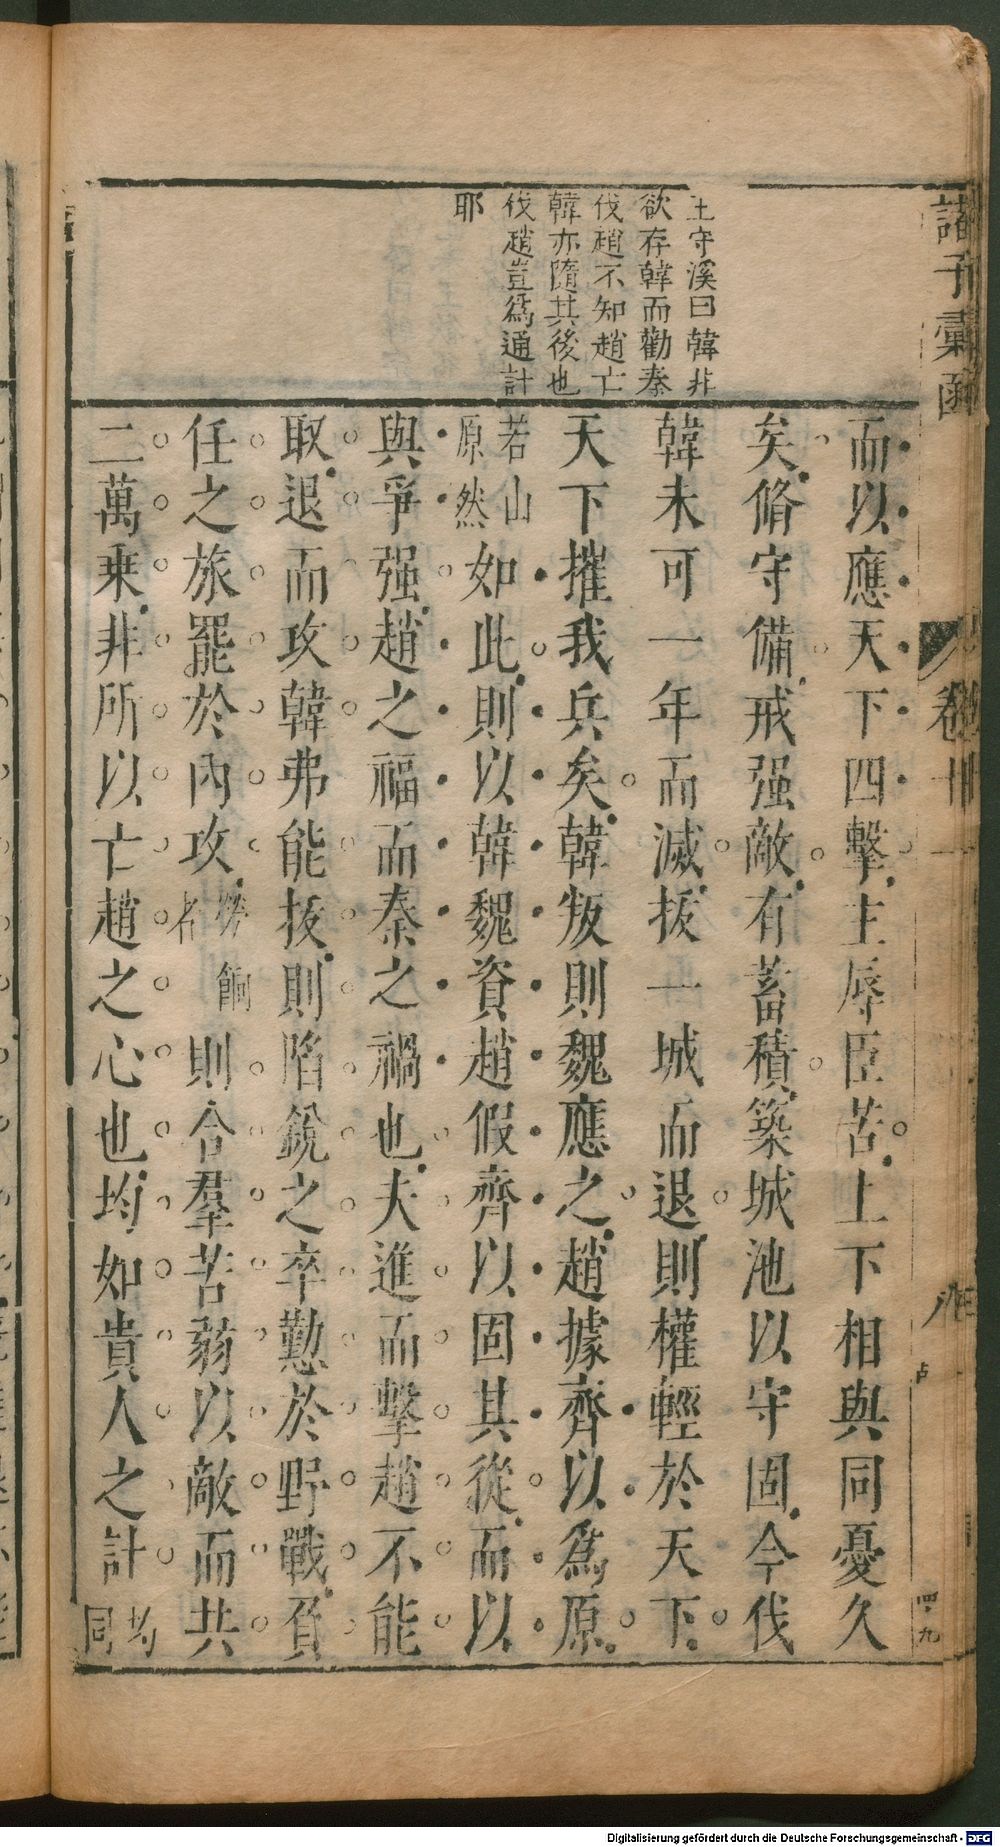 諸子彙函
卷十一
四九
王守溪曰韓非
欲存韓而勸秦
伐趙不知趙亡
韓亦隨其後也
伐趙豈爲通計
耶
而以應天下四擊主辱臣苦上下相與同憂久
矣脩守備戒强敵有蓄積築城池以守固今伐
韓未可一年而滅拔一城而退則權輕於天下
天下摧我兵矣韓叛則魏應之趙據齊以爲原
若山原然如此則以韓魏資趙假齊以固其從而以
與爭强趙之福而秦之禍也夫進而擊趙不能
取退而攻韓弗能拔則陷銳之卒懃於野戰負
任之旅罷於內攻勞餉者則合羣苦弱以敵而共
二萬乘非所以亡趙之心也均如貴人之計均同
Digitalisierung gefördert durch die Deutsche Forschungsgemeinschaft - DFG